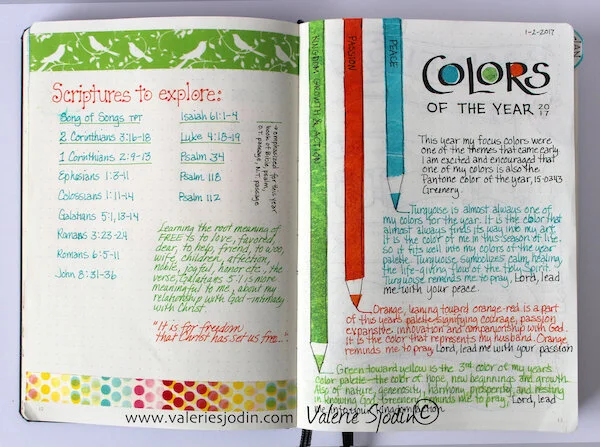 Scriptures to explore:
Song of Songs TPT
2 Corinthians 3:16-18
1 Corinthians 2:9-13
Ephesians 1:3-11
Colossians 1:11-14
Galatians 5:1, 13-14
Romans 3:23-24
Romans 6:5-11
John 8:31-36
Isaiah 61:1-4
Luke 4:18-19
Psalm 34
Psalm 118
Psalm 112
emphasized for this year
book of Bible, psalm,
O.T. passage, N.T. passage
Learning the root meaning of
FREE is to love, favored,
dear, to help, friend, to woo,
wife, children, affection,
noble, joyful, honor etc., the
verse, Galatians 5:1 is more
meaningful to me, about my
relationship with God-intimacy
with Christ.
"It is for freedom
that Christ has set us free..."
12
www.valeriesjodin.com
KINGDOM GROWTH & ACTION
PASSION
PEACE
1-2-2017
JAN
COLORS
OF THE YEAR 2017
This year my focus colors were
one of the themes that came early.
I am excited and encouraged that
one of my colors is also the
Pantone color of the year, 15-0343
Greenery.
Turquoise is almost always one of
my colors for the year. It is the color that
almost always finds its way into my art.
It is the color of me in this season of life.
So it fits well into my colors of the year
palette. Turquoise symbolizes calm, healing,
the life-giving flow of the Holy Spirit.
Turquoise reminds me to pray, Lord, lead
me with your peace.
Orange, leaning toward orange-red is a part
of this years palette signifying courage, passion
expansive innovation and companionship with God.
It is the color that represents my husband. Orange,
reminds me to pray, Lord, lead me with your passion
Green toward yellow is the 3rd color of my year's
color palette-the color of hope, new beginnings and growth.
Also of nature, generosity, harmony, prosperity, and resting
in knowing God. Greenery reminds me to pray, Lord, lead
me into your kingdom action
Valerie Sjodin ©
13